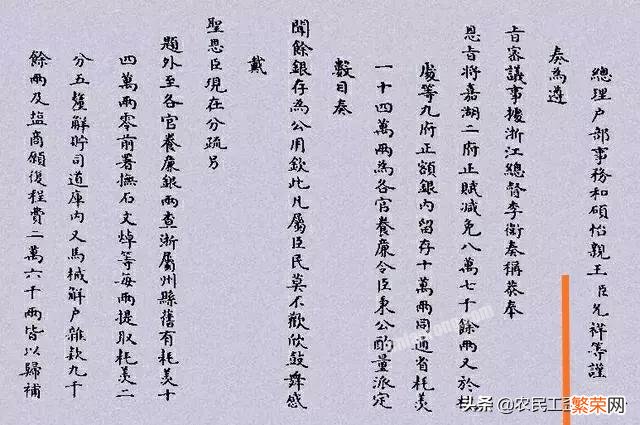 總理户部事務和碩怡親王臣允祥等謹
奏為遵
旨審議事據浙江總督李衛奏稱恭奉
恩旨將嘉湖二府正賦減免八萬七千餘兩又於杭
處等九府正額銀內留存十萬兩同通省耗羨
一十四萬兩為各官養廉令臣秉公酌量派定
數目奏
聞餘銀存為公用欽此凡屬臣民莫不歡欣鼓舞感
戴
聖恩臣現在分疏另
題外至各官養廉銀兩查浙屬州縣舊有耗羨十
四萬兩零前署撫石文焯等每兩提取耗羨二
分五釐解貯司道庫內又馬械解户雜款九千
餘兩及塩商願復程費二萬六千兩皆以歸補
头条 @农民工
繁荣网